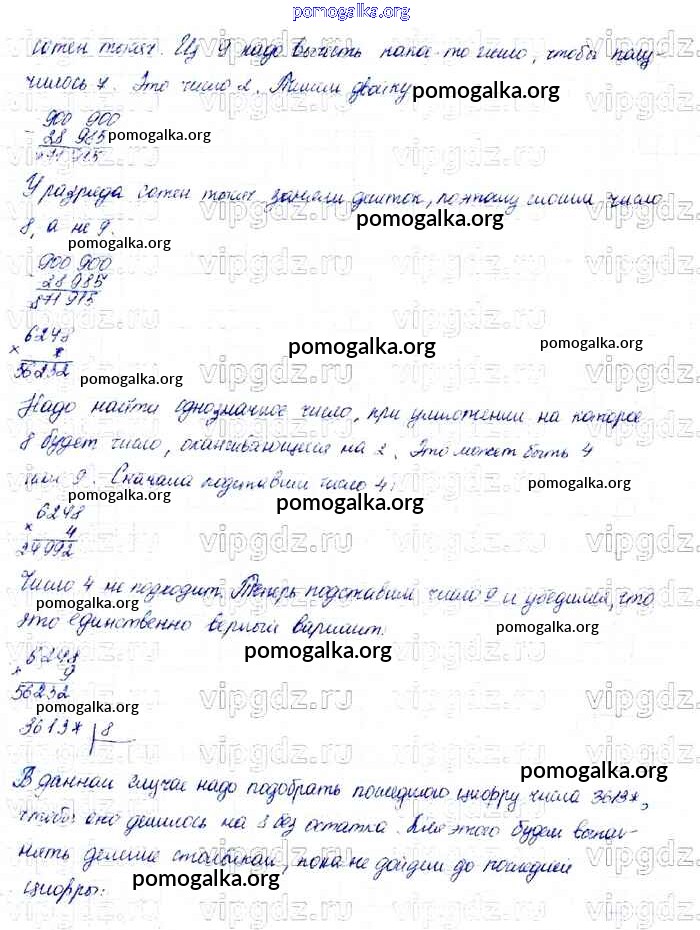 pomogalka.org
сотен тысяч. Из 9 надо вычесть какое-то число, чтобы полу-
чилось 7. Это число 2. Пишем двойку
pomogalka.org
900 900
- 28 985
871 915
pomogalka.org
У разряда сотен тысяч заняли десяток, поэтому пишем число
pomogalka.org
8, а не 9.
pomogalka.org
900 900
- 28 985
871 915
pomogalka.org
6248
× *
56232
pomogalka.org
pomogalka.org
pomogalka.org
Надо найти однозначное число, при умножении на которое
8 будет число, оканчивающееся на 2. Это может быть 4
или 9. Сначала подставим число 4:
pomogalka.org
pomogalka.org
pomogalka.org
6248
× 4
24992
Число 4 не подходит. Теперь подставим число 9 и убедимся, что
pomogalka.org
это единственно верный вариант.
pomogalka.org
pomogalka.org
6248
× 9
56232
3613* 8
pomogalka.org
В данном случае надо подобрать последнюю цифру числа 3613*,
чтобы оно делилось на 8 без остатка. Для этого будем выпол-
нять деление столбиком, пока не дойдем до последней
цифры:
pomogalka.org
vipgdz.ru